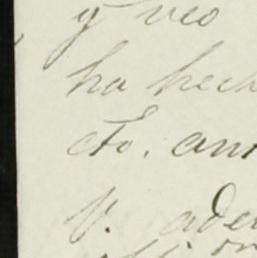 y veo
ha hech
cto. am
V. ade